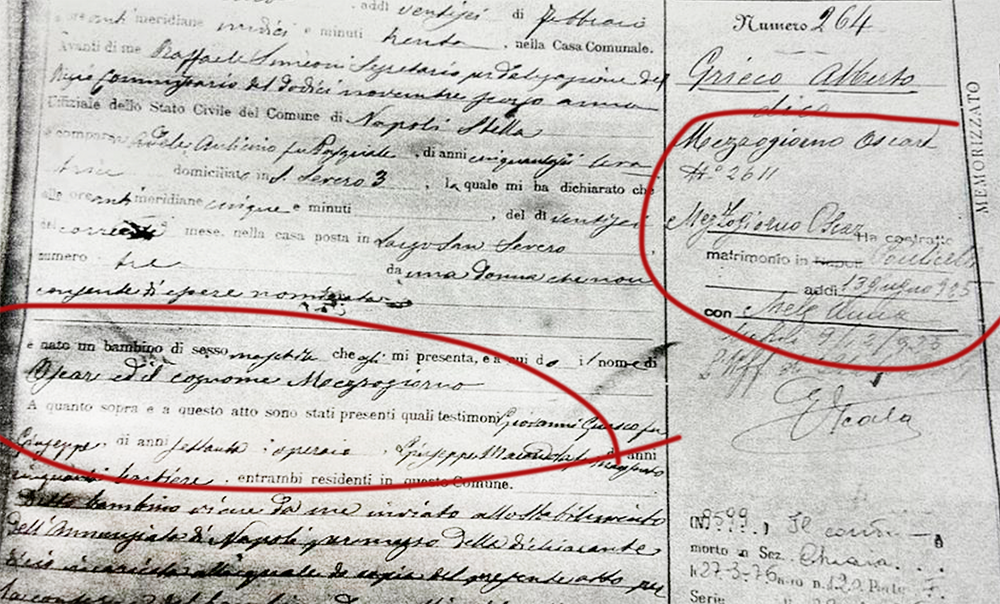 addì ventisei di Febbraio
ore anti meridiane undici e minuti trenta, nella Casa Comunale.
Avanti di me Raffaele Simeoni Segretario per delegazione del
Regio Commissario del dodici novembre scorso anno
Uffiziale dello Stato Civile del Comune di Napoli Stella
è comparsa Adele, di anni cinquantasei leva
trice domiciliata in S. Severo 3, la quale mi ha dichiarato che
alle ore anti meridiane cinque e minuti, del dì ventisei
del corrente mese, nella casa posta in Largo San Severo
numero tre da una donna che non
consente di essere nominata
è nato un bambino di sesso maschile che egli mi presenta, e a cui do il nome di
Oscar ed il cognome Mezzogiorno
A quanto sopra e a questo atto sono stati presenti quali testimoni Giovanni fu
Giuseppe di anni sessanta operaio, Giuseppe di anni
cinquanta barbiere, entrambi residenti in questo Comune.
Detto bambino viene da me inviato allo Stabilimento
dell'Annunziata di Napoli per mezzo della dichiarante
copia del presente atto per
Numero 264
Grieco Alberto
dico
Mezzogiorno Oscar
N° 2611
Mezzogiorno Oscar Ha contratto
matrimonio in Napoli Ponticelli
addì 13 giugno 925
con Anna
Scala
N 8599,
morto in Sez. Chiaia
li 27-3-76 n.
Serie
MEMORIZZATO